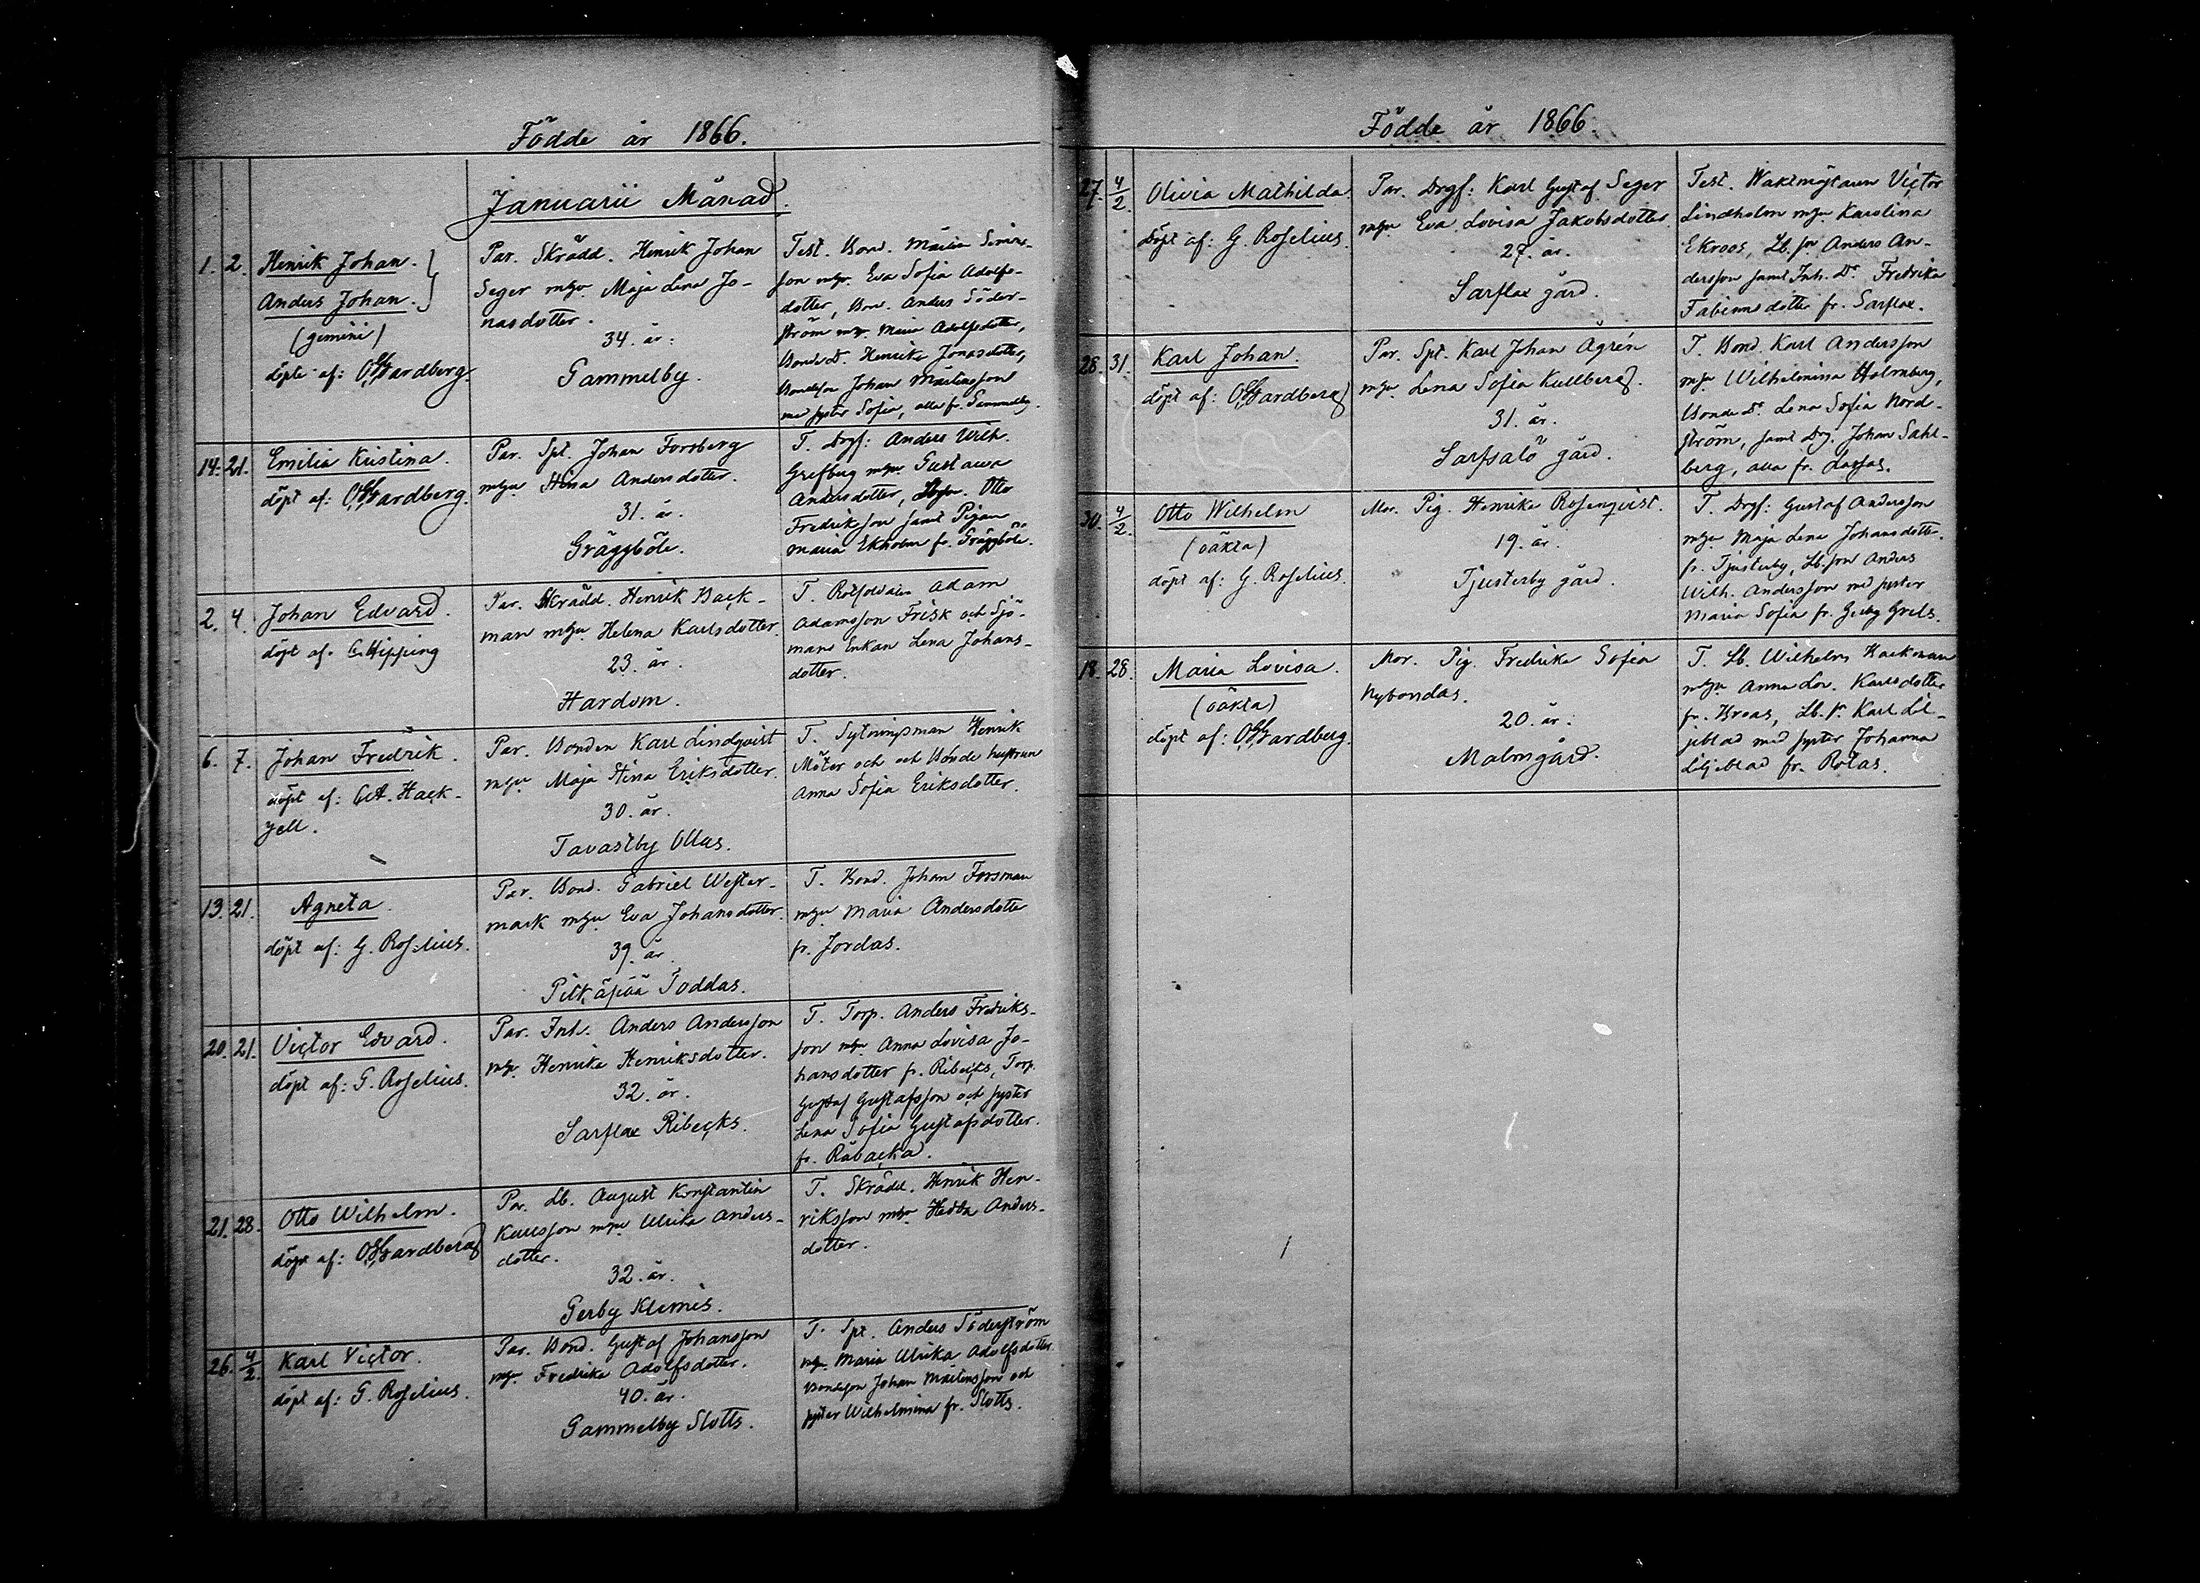 Födde år 1866.
Januarii Månad.
1. 2. Henrik Johan.
Anders Johan.
(gemini)
döpte af: O. Gardberg.
Par. Skrädd. Henrik Johan
Seger m. hu. Maja Lena Jo-
nasdotter.
34. år.
Gammelby.
Test. Bond. Mårten Simons-
son m. hu. Eva Sofia Adolfs-
dotter, Bon. Anders Söder-
ström m. hu. Maria Adolfsdotter,
Bonded. Henrika Jonasdotter,
Bondeson Johan Mårtensson
med syster Sofia, alla fr. Gammelby.
14. 21. Emilia Kristina.
döpt af: O. Gardberg.
Par. Spt. Johan Forsberg
m. hu. Stina Andersdotter.
31. år.
Gräggböle.
T. Drgf: Anders Wilh.
Grefberg m. hu. Gustava
Andersdotter, Otto
Fredriksson samt Pigan
Maria Ekholm fr. Gräggböle.
2. 4. Johan Edvard.
döpt af. Hipping
Par. Skrädd. Henrik Back-
man m. hu. Helena Karlsdotter.
23. år.
Hardom.
T. Adam
Adamsson Frisk och Sjö-
mans Enkan Lena Johans-
dotter.
6. 7. Johan Fredrik.
döpt af: Hack-
zell.
Par. Bonden Karl Lindqvist
m. hu. Maja Stina Eriksdotter.
30. år.
Tavastby Ollas.
T. Sytningsman Henrik
Möter och och Bonde hustrun
Anna Sofia Eriksdotter.
13. 21. Agneta.
döpt af: G. Roselius.
Par. Bond. Gabriel Wester-
mark m. hu. Eva Johansdotter.
39. år.
Pitkäpää Toddas.
T. Bond. Johan Forsman
m. hu. Maria Andersdotter
fr. Jordas.
20. 21. Victor Edvard.
döpt af: G. Roselius.
Par. Inh. Anders Andersson
m. hu. Henrika Henriksdotter.
32. år.
Sarflax Ribecks.
T. Torp. Anders Fredriks-
son m. hu. Anna Lovisa Jo-
hansdotter fr. Ribecks, Torp.
Gustaf Gustafsson och syster
Lena Sofia Gustafsdotter.
fr. Råbacka.
21. 28. Otto Wilhelm.
döpt af: O. Gardberg
Par. Lb. August Konstantin
Karlsson m. hu. Ulrika Anders-
dotter.
32. år.
Gerby Klemis.
T. Skrädd. Henrik Hen-
riksson m. hu. Hedda Anders-
dotter.
26. 4/2. Karl Victor.
döpt af: G. Roselius.
Par. Bond. Gustaf Johansson
m. hu. Fredrika Adolfsdotter.
40. år.
Gammelby Slotts.
T. Spt. Anders Söderström
m. hu. Maria Ulrika Adolfsdotter
Bondeson Johan Mårtensson och
syster Wilhelmina fr. Slotts.
Födde år 1866.
27. 4/2. Olivia Mathilda.
döpt af: G. Roselius.
Par. Drgf: Karl Gustaf Seger
m. hu. Eva Lovisa Jakobsdotter.
27. år.
Sarflax gård.
Test. Waktmästaren Victor
Lindholm m. hu. Karolina
Ekroos, Lb. sn. Anders An-
dersson samt Inh. Dr. Fredrika
Fabiansdotter fr. Sarflax.
28. 31. Karl Johan.
döpt af: O. Gardberg
Par. Spt. Karl Johan Ågrén
m. hu. Lena Sofia Kullberg.
31. år.
Sarfsalö gård.
T. Bond. Karl Andersson
m. hu. Wilhelmina Holmberg,
Bonde Dr. Lena Sofia Nord-
ström, samt Drg. Johan Sahl-
berg, alla fr.
30. 4/2. Otto Wilhelm
(oäkta)
döpt af: G. Roselius.
Mor. Pig. Henrika Rosenqvist.
19. år.
Tjusterby gård.
T. Drgf: Gustaf Andersson
m. hu. Maja Lena Johansdotter.
fr. Tjusterby, Lb. son Anders
Wilh. Andersson med syster
Maria Sofia fr. Grels.
18. 28. Maria Lovisa.
(oäkta)
döpt af: O. Gardberg.
Mor. Pig. Fredrika Sofia
Nybondas.
20. år.
Malmgård.
T. Lb. Wilhelm Backman
m. hu. Anna Lov. Karlsdotter
fr. Broas, Lb. Karl Lil-
jeblad med syster Johanna
Liljeblad fr. Rotas.